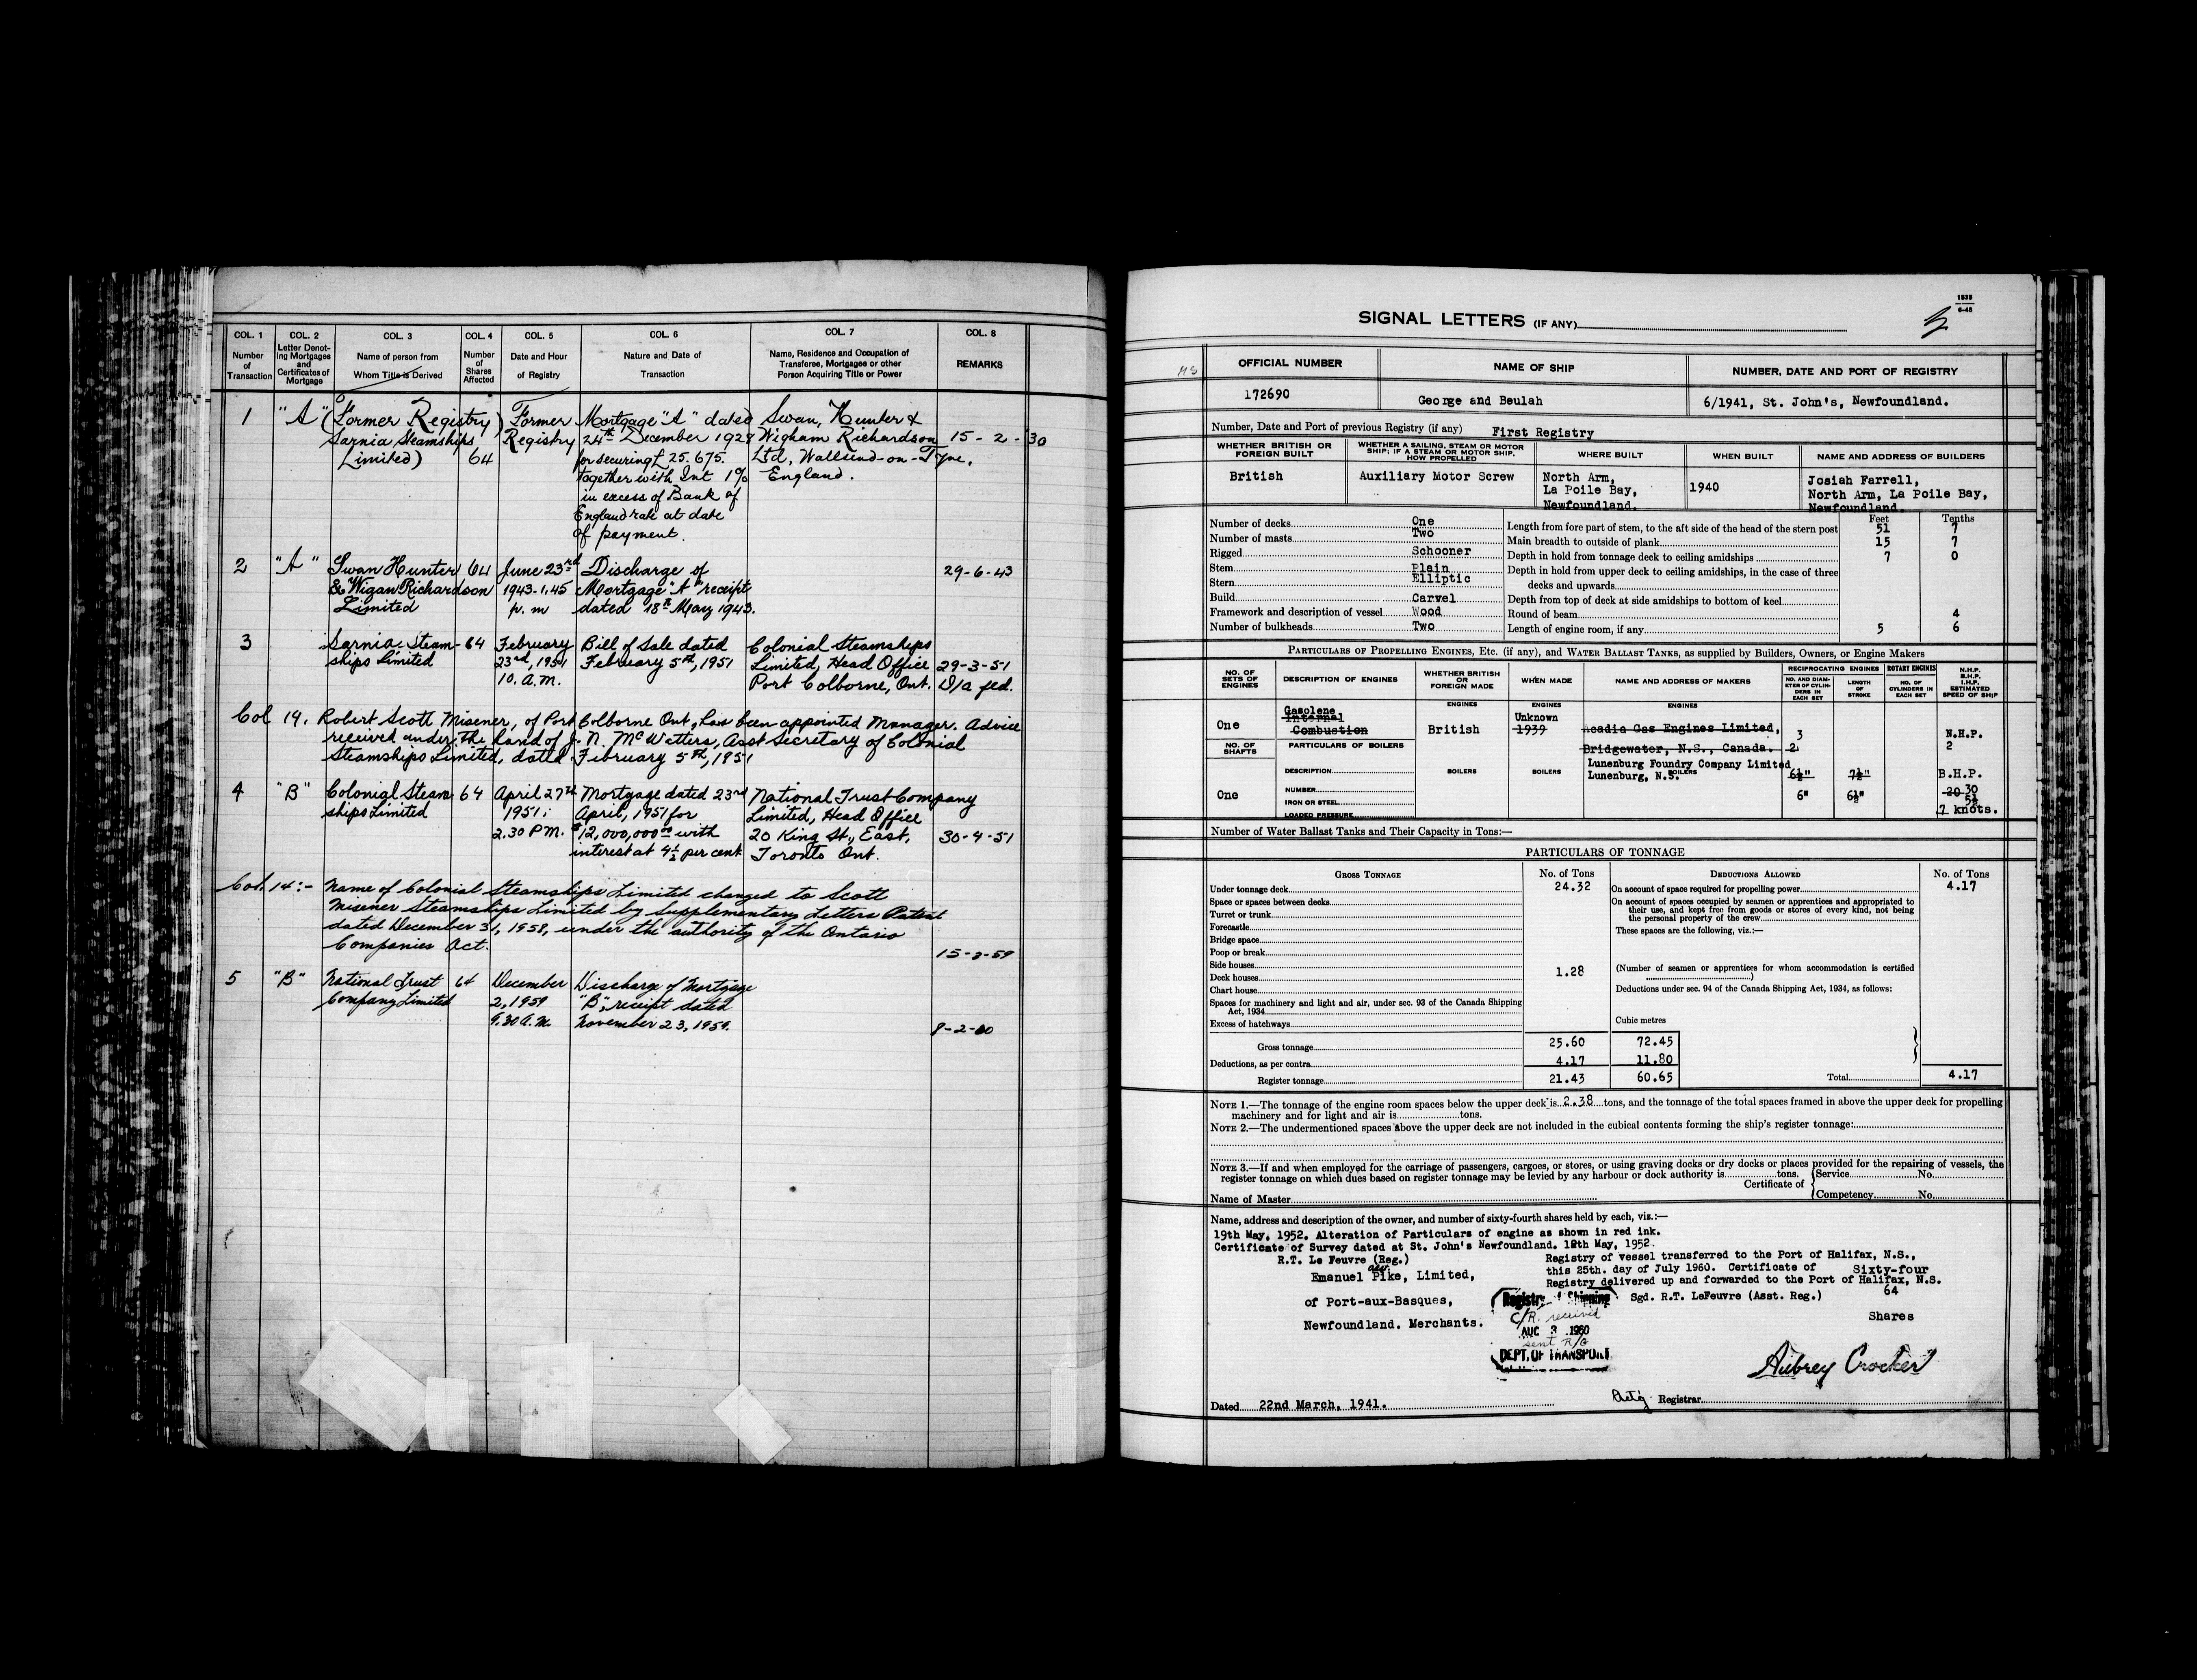 COL. 1 COL. 2 COL. 3 COL. 4 COL. 5 COL. 6 COL. 7 COL. 8
Number of Transaction
Letter Denoting Mortgages and Certificates of Mortgage
Name of person from Whom Title is Derived
Number of Shares Affected
Date and Hour of Registry
Nature and Date of Transaction
Name, Residence and Occupation of Transferee, Mortgagee or other Person Acquiring Title or Power
REMARKS
1 "A" (Former Registry) Former Mortgage "A" dated Swan, Hunter &
Sarnia Steamships Registry 24th December 1928 Wigham Richardson 15-2-30
Limited) 64 for securing £ 25.675. Ltd, Wallsend-on-Tyne,
together with Int 1% England.
in excess of Bank of
England rate at date
of payment.
2 "A" Swan Hunter 64 June 23rd Discharge of 29-6-43
& Wigan Richardson 1943-1.45 Mortgage "A" receipt
Limited p.m dated 18th May 1943.
3 Sarnia Steam- 64 February Bill of Sale dated Colonial Steamships
ships Limited 23rd, 1951 February 5th, 1951 Limited, Head Office 29-3-51
10. A.M. Port Colborne, Ont. D/a fld.
Col 14. Robert Scott Misener, of Port Colborne Ont, has been appointed Manager. Advice
received under the hand of J. N. McWatters, Asst Secretary of Colonial
Steamships Limited, dated February 5th, 1951
4 "B" Colonial Steam 64 April 27th Mortgage dated 23rd National Trust Company
ships Limited 1951; April, 1951 for Limited, Head Office
2.30 P.M. $12,000,000.00 with 20 King St., East, 30-4-51
interest at 4½ per cent Toronto Ont.
Col. 14:- Name of Colonial Steamships Limited changed to Scott
Misener Steamships Limited by Supplementary Letters Patent
dated December 31, 1958, under the authority of the Ontario
Companies Act.
15-2-59
5 "B" National Trust 64 December Discharge of Mortgage
Company Limited 2, 1959 "B", receipt dated
9.30 A.M. November 23, 1959.
8-2-60
1535
6-48
SIGNAL LETTERS (IF ANY)
OFFICIAL NUMBER NAME OF SHIP NUMBER, DATE AND PORT OF REGISTRY
172690 George and Beulah 6/1941, St. John's, Newfoundland.
Number, Date and Port of previous Registry (if any) First Registry
WHETHER BRITISH OR FOREIGN BUILT
WHETHER A SAILING, STEAM OR MOTOR SHIP; IF A STEAM OR MOTOR SHIP, HOW PROPELLED
WHERE BUILT WHEN BUILT NAME AND ADDRESS OF BUILDERS
British Auxiliary Motor Screw North Arm, 1940 Josiah Farrell,
La Poile Bay, North Arm, La Poile Bay,
Newfoundland. Newfoundland.
Feet Tenths
Number of decks One Length from fore part of stem, to the aft side of the head of the stern post 51 7
Number of masts Two Main breadth to outside of plank 15 7
Rigged Schooner Depth in hold from tonnage deck to ceiling amidships 7 0
Stem Plain Depth in hold from upper deck to ceiling amidships, in the case of three
Stern Elliptic decks and upwards
Build Carvel Depth from top of deck at side amidships to bottom of keel
Framework and description of vessel Wood Round of beam 4
Number of bulkheads Two Length of engine room, if any 5 6
PARTICULARS OF PROPELLING ENGINES, ETC. (if any), and WATER BALLAST TANKS, as supplied by Builders, Owners, or Engine Makers
NO. OF SETS OF ENGINES
DESCRIPTION OF ENGINES
WHETHER BRITISH OR FOREIGN MADE
WHEN MADE
NAME AND ADDRESS OF MAKERS
RECIPROCATING ENGINES
NO. AND DIAMETER OF CYLINDERS IN EACH SET
LENGTH OF STROKE
ROTARY ENGINES
NO. OF CYLINDERS IN EACH SET
N.H.P. B.H.P. I.H.P. ESTIMATED SPEED OF SHIP
ENGINES ENGINES ENGINES
Gasolene Unknown
One Internal British 1939 Acadia Gas Engines Limited, 3
Combustion Bridgewater, N.S., Canada. 2 N.H.P.
2
NO. OF SHAFTS PARTICULARS OF BOILERS
Lunenburg Foundry Company Limited
DESCRIPTION BOILERS BOILERS BOILERS Lunenburg, N.S. 6½" 7½" B.H.P.
One NUMBER 6" 6½" 20 30
IRON OR STEEL 5½
LOADED PRESSURE 7 knots.
Number of Water Ballast Tanks and Their Capacity in Tons:—
PARTICULARS OF TONNAGE
GROSS TONNAGE No. of Tons DEDUCTIONS ALLOWED No. of Tons
Under tonnage deck 24.32 On account of space required for propelling power 4.17
Space or spaces between decks On account of spaces occupied by seamen or apprentices and appropriated to
Turret or trunk their use, and kept free from goods or stores of every kind, not being
Forecastle the personal property of the crew
Bridge space These spaces are the following, viz.:—
Poop or break
Side houses
Deck houses 1.28 (Number of seamen or apprentices for whom accommodation is certified )
Chart house Deductions under sec. 94 of the Canada Shipping Act, 1934, as follows:
Spaces for machinery and light and air, under sec. 93 of the Canada Shipping
Act, 1934
Excess of hatchways Cubic metres
Gross tonnage 25.60 72.45
Deductions, as per contra 4.17 11.80
Register tonnage 21.43 60.65 Total 4.17
NOTE 1.—The tonnage of the engine room spaces below the upper deck is 2.38 tons, and the tonnage of the total spaces framed in above the upper deck for propelling
machinery and for light and air is tons.
NOTE 2.—The undermentioned spaces above the upper deck are not included in the cubical contents forming the ship's register tonnage:
NOTE 3.—If and when employed for the carriage of passengers, cargoes, or stores, or using graving docks or dry docks or places provided for the repairing of vessels, the
register tonnage on which dues based on register tonnage may be levied by any harbour or dock authority is tons.
Certificate of Service No.
Competency No.
Name of Master
Name, address and description of the owner, and number of sixty-fourth shares held by each, viz.:—
19th May, 1952. Alteration of Particulars of engine as shown in red ink.
Certificate of Survey dated at St. John's Newfoundland. 18th May, 1952.
R.T. Le Feuvre (Reg.)
Registry of vessel transferred to the Port of Halifax, N.S.,
this 25th. day of July 1960. Certificate of Sixty-four
Registry delivered up and forwarded to the Port of Halifax, N.S.
Sgd. R.T. LeFeuvre (Asst. Reg.) 64
Shares
Emanuel Pike, Limited,
of Port-aux-Basques,
Newfoundland. Merchants.
Registry of Shipping
C/R. received
AUG 3 1960
sent R/G
DEPT. OF TRANSPORT
Aubrey Crocker
Dated 22nd March, 1941. Actg Registrar